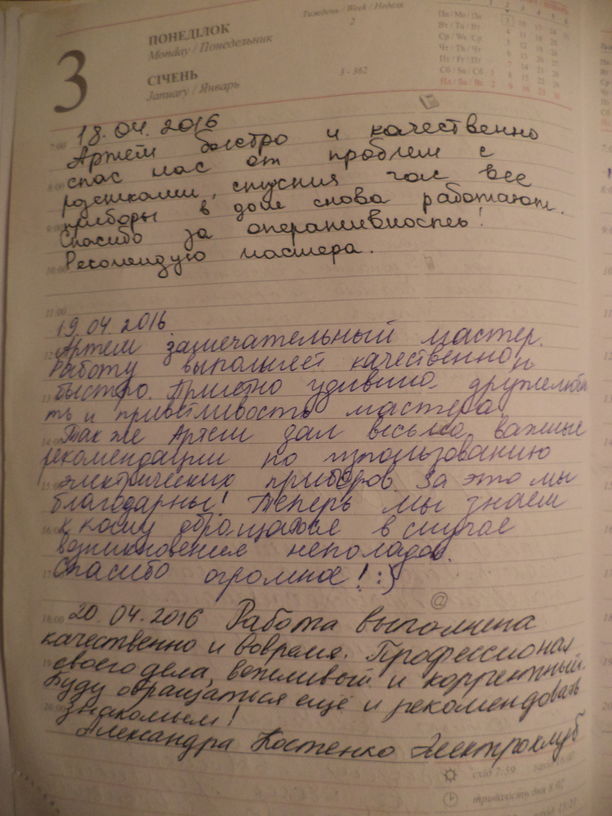 3
ПОНЕДІЛОК
Monday / Понедельник
СІЧЕНЬ
January / Январь
Тиждень / Week / Неделя
2
3 - 362
Пн / Mo / Пн
Вт / Tu / Вт
Ср / We / Ср
Чт / Th / Чт
Пт / Fr / Пт
Сб / Sa / Сб
Нд / Su / Вс
7:00
18.04.2016
Артём быстро и качественно
8:00
спас нас от проблем с
розетками, спустя час все
приборы в доме снова работают.
9:00
Спасибо за оперативность!
Рекомендую мастера.
10:00
11:00
19.04.2016
12:00
Артем замечательный мастер.
Работу выполняет качественно и
быстро. Приятно удивило дружелюбнос
ть и приветливость мастера
14:00
Так же Артем дал весьма важные
рекомендации по использованию
электрических приборов. За это мы
благодарны! Теперь мы знаем
к кому обращаться в случае
возникновения неполадок.
Спасибо огромное! :)
@
18:00
20.04.2016 Работа выполнена
качественно и вовремя. Профессионал
своего дела, вежливый и корректный.
Буду обращаться ещё и рекомендовать
20:00
знакомым!
Александра Костенко Электроклуб
схід 7:59
тривалість дня 8:07